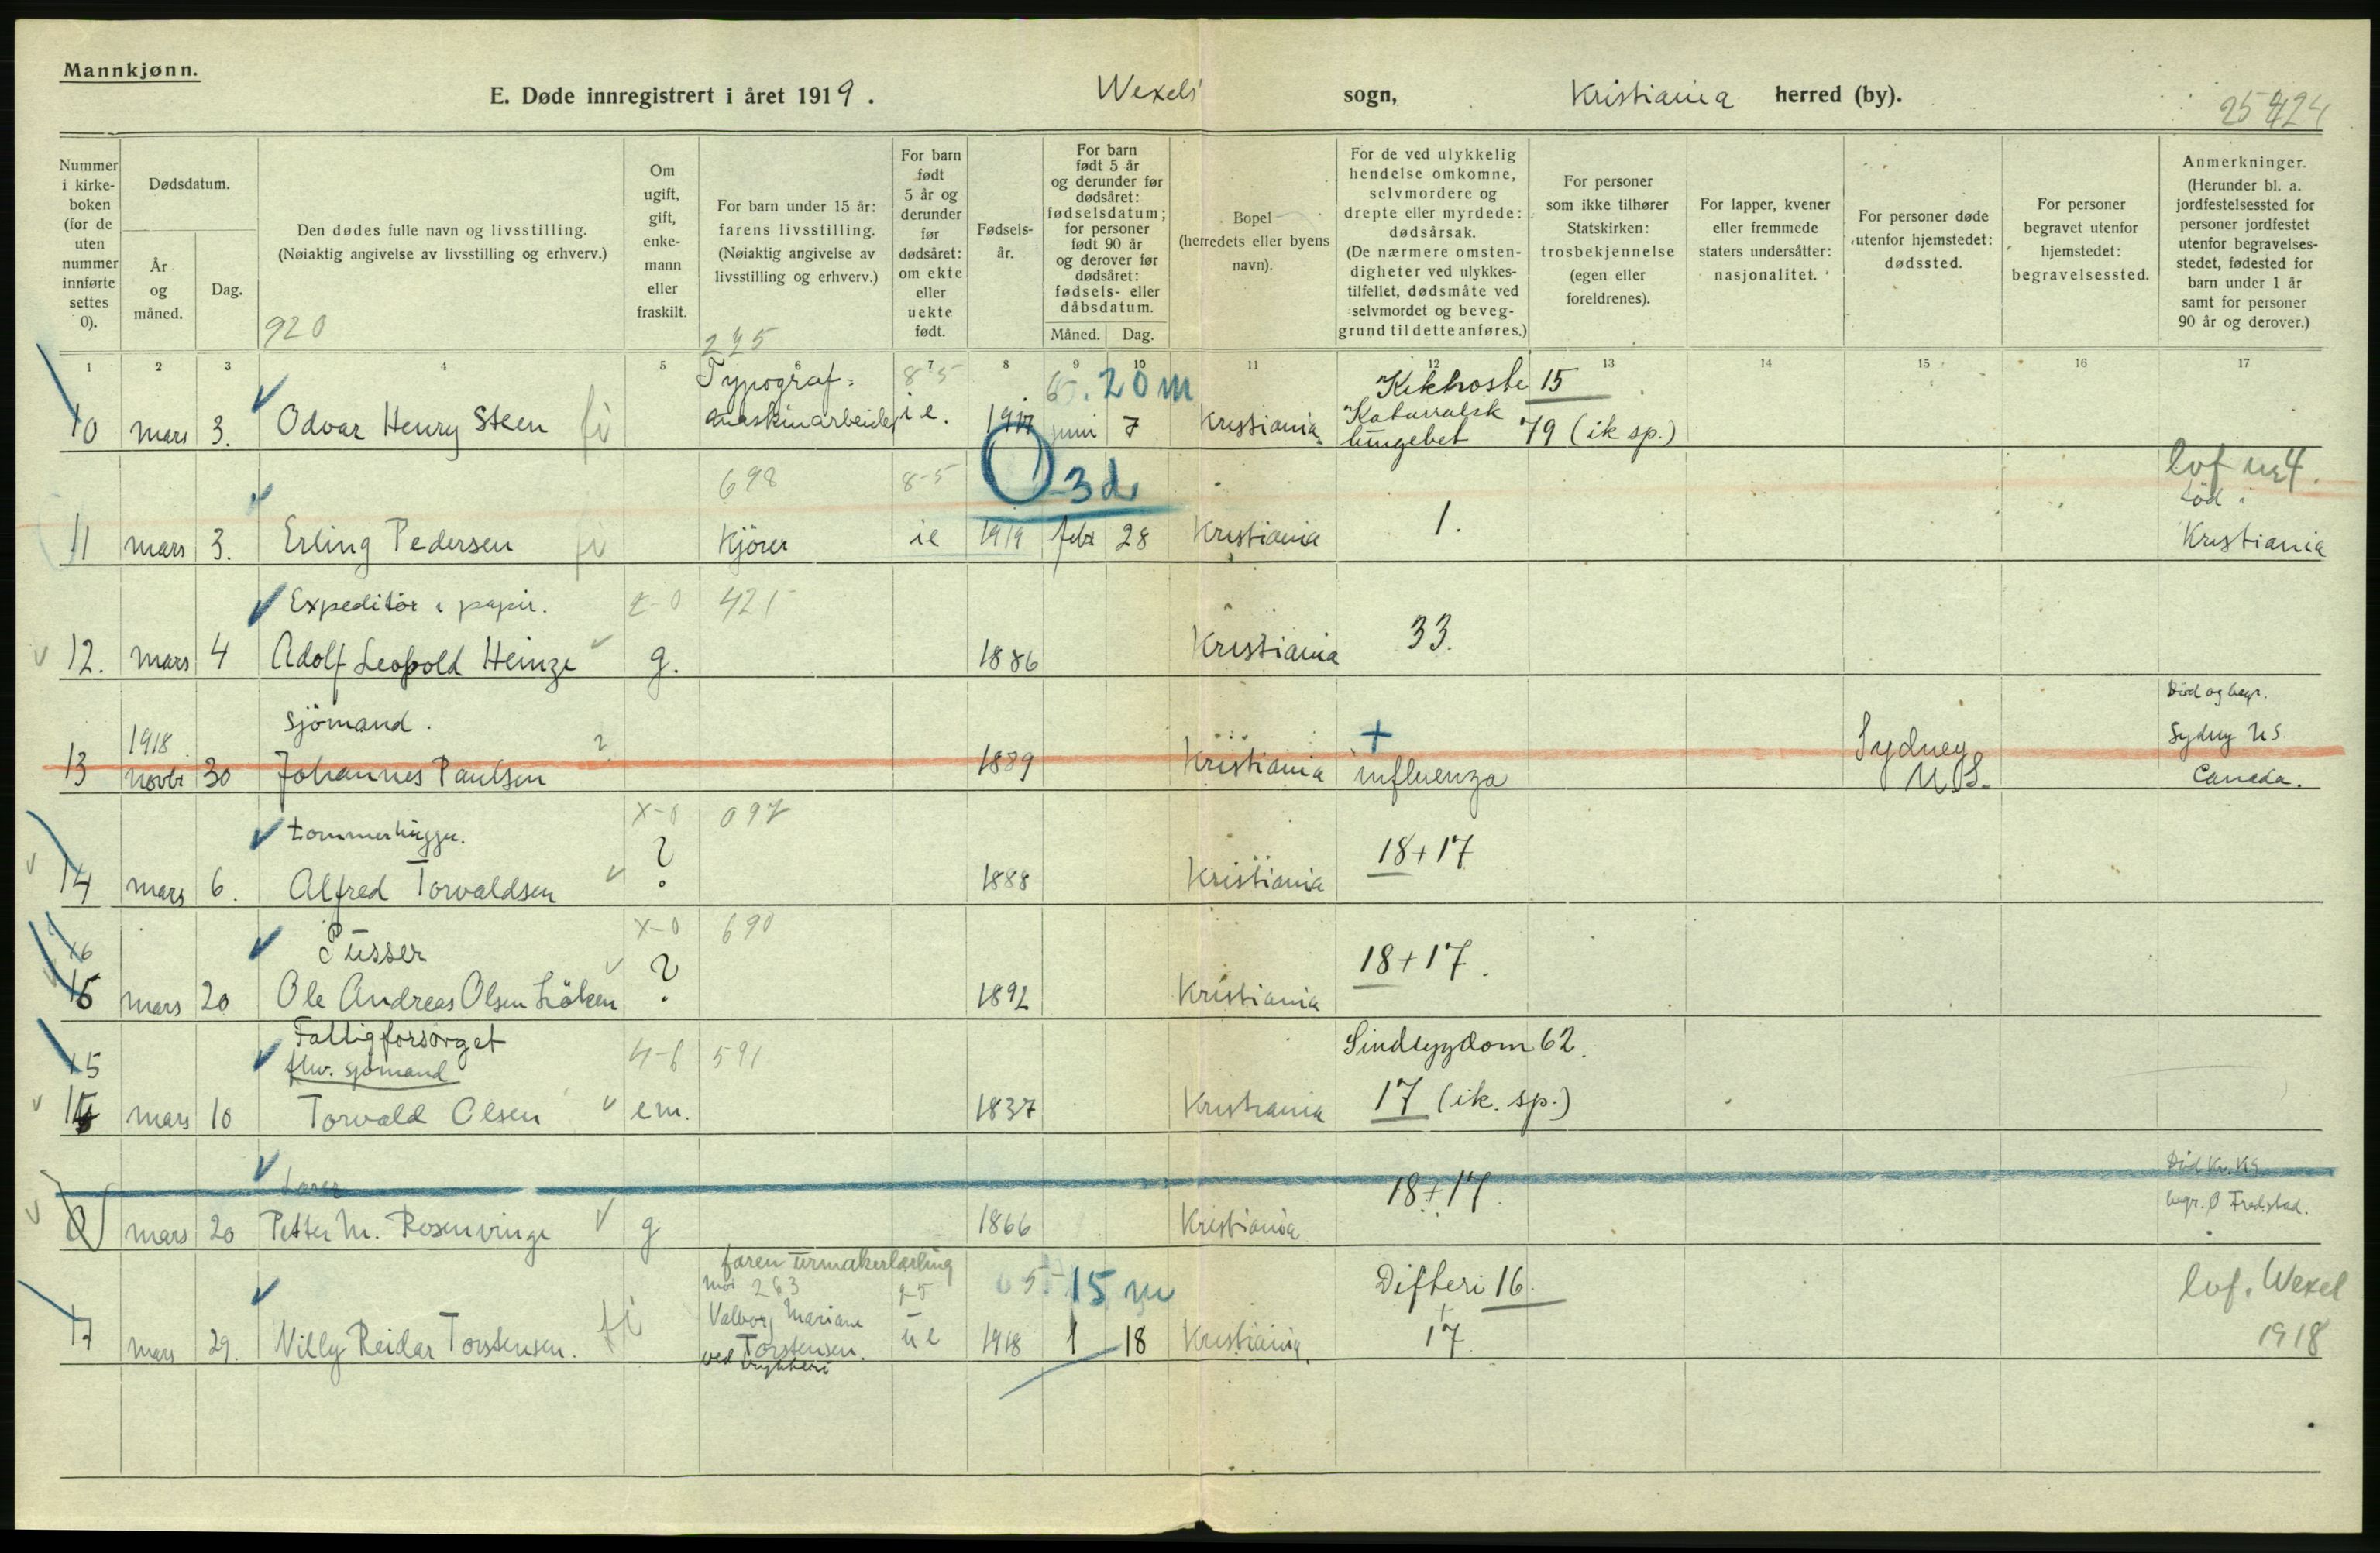 Mannkjønn.
E. Døde innregistrert i året 1919. Wexels sogn, Kristiania herred (by).
25 424
Nummer i kirkeboken (for de uten nummer innførte settes 0).
Dødsdatum.
År og måned.
Dag.
Den dødes fulle navn og livsstilling.
(Nøiaktig angivelse av livsstilling og erhverv.)
920
Om ugift, gift, enkemann eller fraskilt.
For barn under 15 år: farens livsstilling.
(Nøiaktig angivelse av livsstilling og erhverv.)
245
For barn født 5 år og derunder før dødsåret: om ekte eller uekte født.
Fødselsår.
For barn født 5 år og derunder før dødsåret: fødselsdatum; for personer født 90 år og derover før dødsåret: fødsels- eller dåbsdatum.
Måned. Dag.
Bopel (herredets eller byens navn).
For de ved ulykkelig hendelse omkomne, selvmordere og drepte eller myrdede: dødsårsak.
(De nærmere omstendigheter ved ulykkestilfellet, dødsmåte ved selvmordet og beveggrund til dette anføres.)
For personer som ikke tilhører Statskirken: trosbekjennelse (egen eller foreldrenes).
For lapper, kvener eller fremmede staters undersåtter: nasjonalitet.
For personer døde utenfor hjemstedet: dødssted.
For personer begravet utenfor hjemstedet: begravelsessted.
Anmerkninger.
(Herunder bl. a. jordfestelsessted for personer jordfestet utenfor begravelsesstedet, fødested for barn under 1 år samt for personer 90 år og derover.)
1 2 3 4 5 6 7 8 9 10 11 12 13 14 15 16 17
Typograf= 8-5 20 m Kikhoste 15
10 mars 3. Odvar Henry Steen fi maskinarbeider ie. 1917 juni 7 Kristiania Katarralsk lungebet 79 (ik sp.)
698 8-5 0 3 d. lof nr 4.
11 mars 3. Erling Pedersen fi Kjörer ie 1919 febr 28 Kristiania 1. född i Kristiania
Expeditör i papir. 421
12. mars 4 Adolf Leopold Heinze g. 1886 Kristiania 33.
sjömand. Död og begr.
13 1918 novbr 30 Johannes Paulsen ? 1889 Kristiania + influenza Sydney N S. Sydney N S. Canada.
tömmerhugger. x-0 097
14 mars 6. Alfred Torvaldsen ? 1888 Kristiania 18+17
16 Pusser x-0 690
15 mars 20 Ole Andreas Olsen Löken ? 1892 Kristiania 18+17.
Fattigforsörget Sindsygdom 62.
15 fhv. sjömand 4-6 591
16 mars 10 Torvald Olsen em. 1837 Kristiania 17 (ik. sp.)
0 mars 20 Petter M. Rosenvinge g 1866 Kristiania 18+17. begr. Ø Fredrstad.
faren urmakerlærling
mor 263 25 5 15 m Difteri 16. lof. Wexel 1918
17 mars 29. Villy Reidar Torstensen. fi Valborg Mariane Torstensen. ved trykkeri ue 1918 1 18 Kristiania. + 17